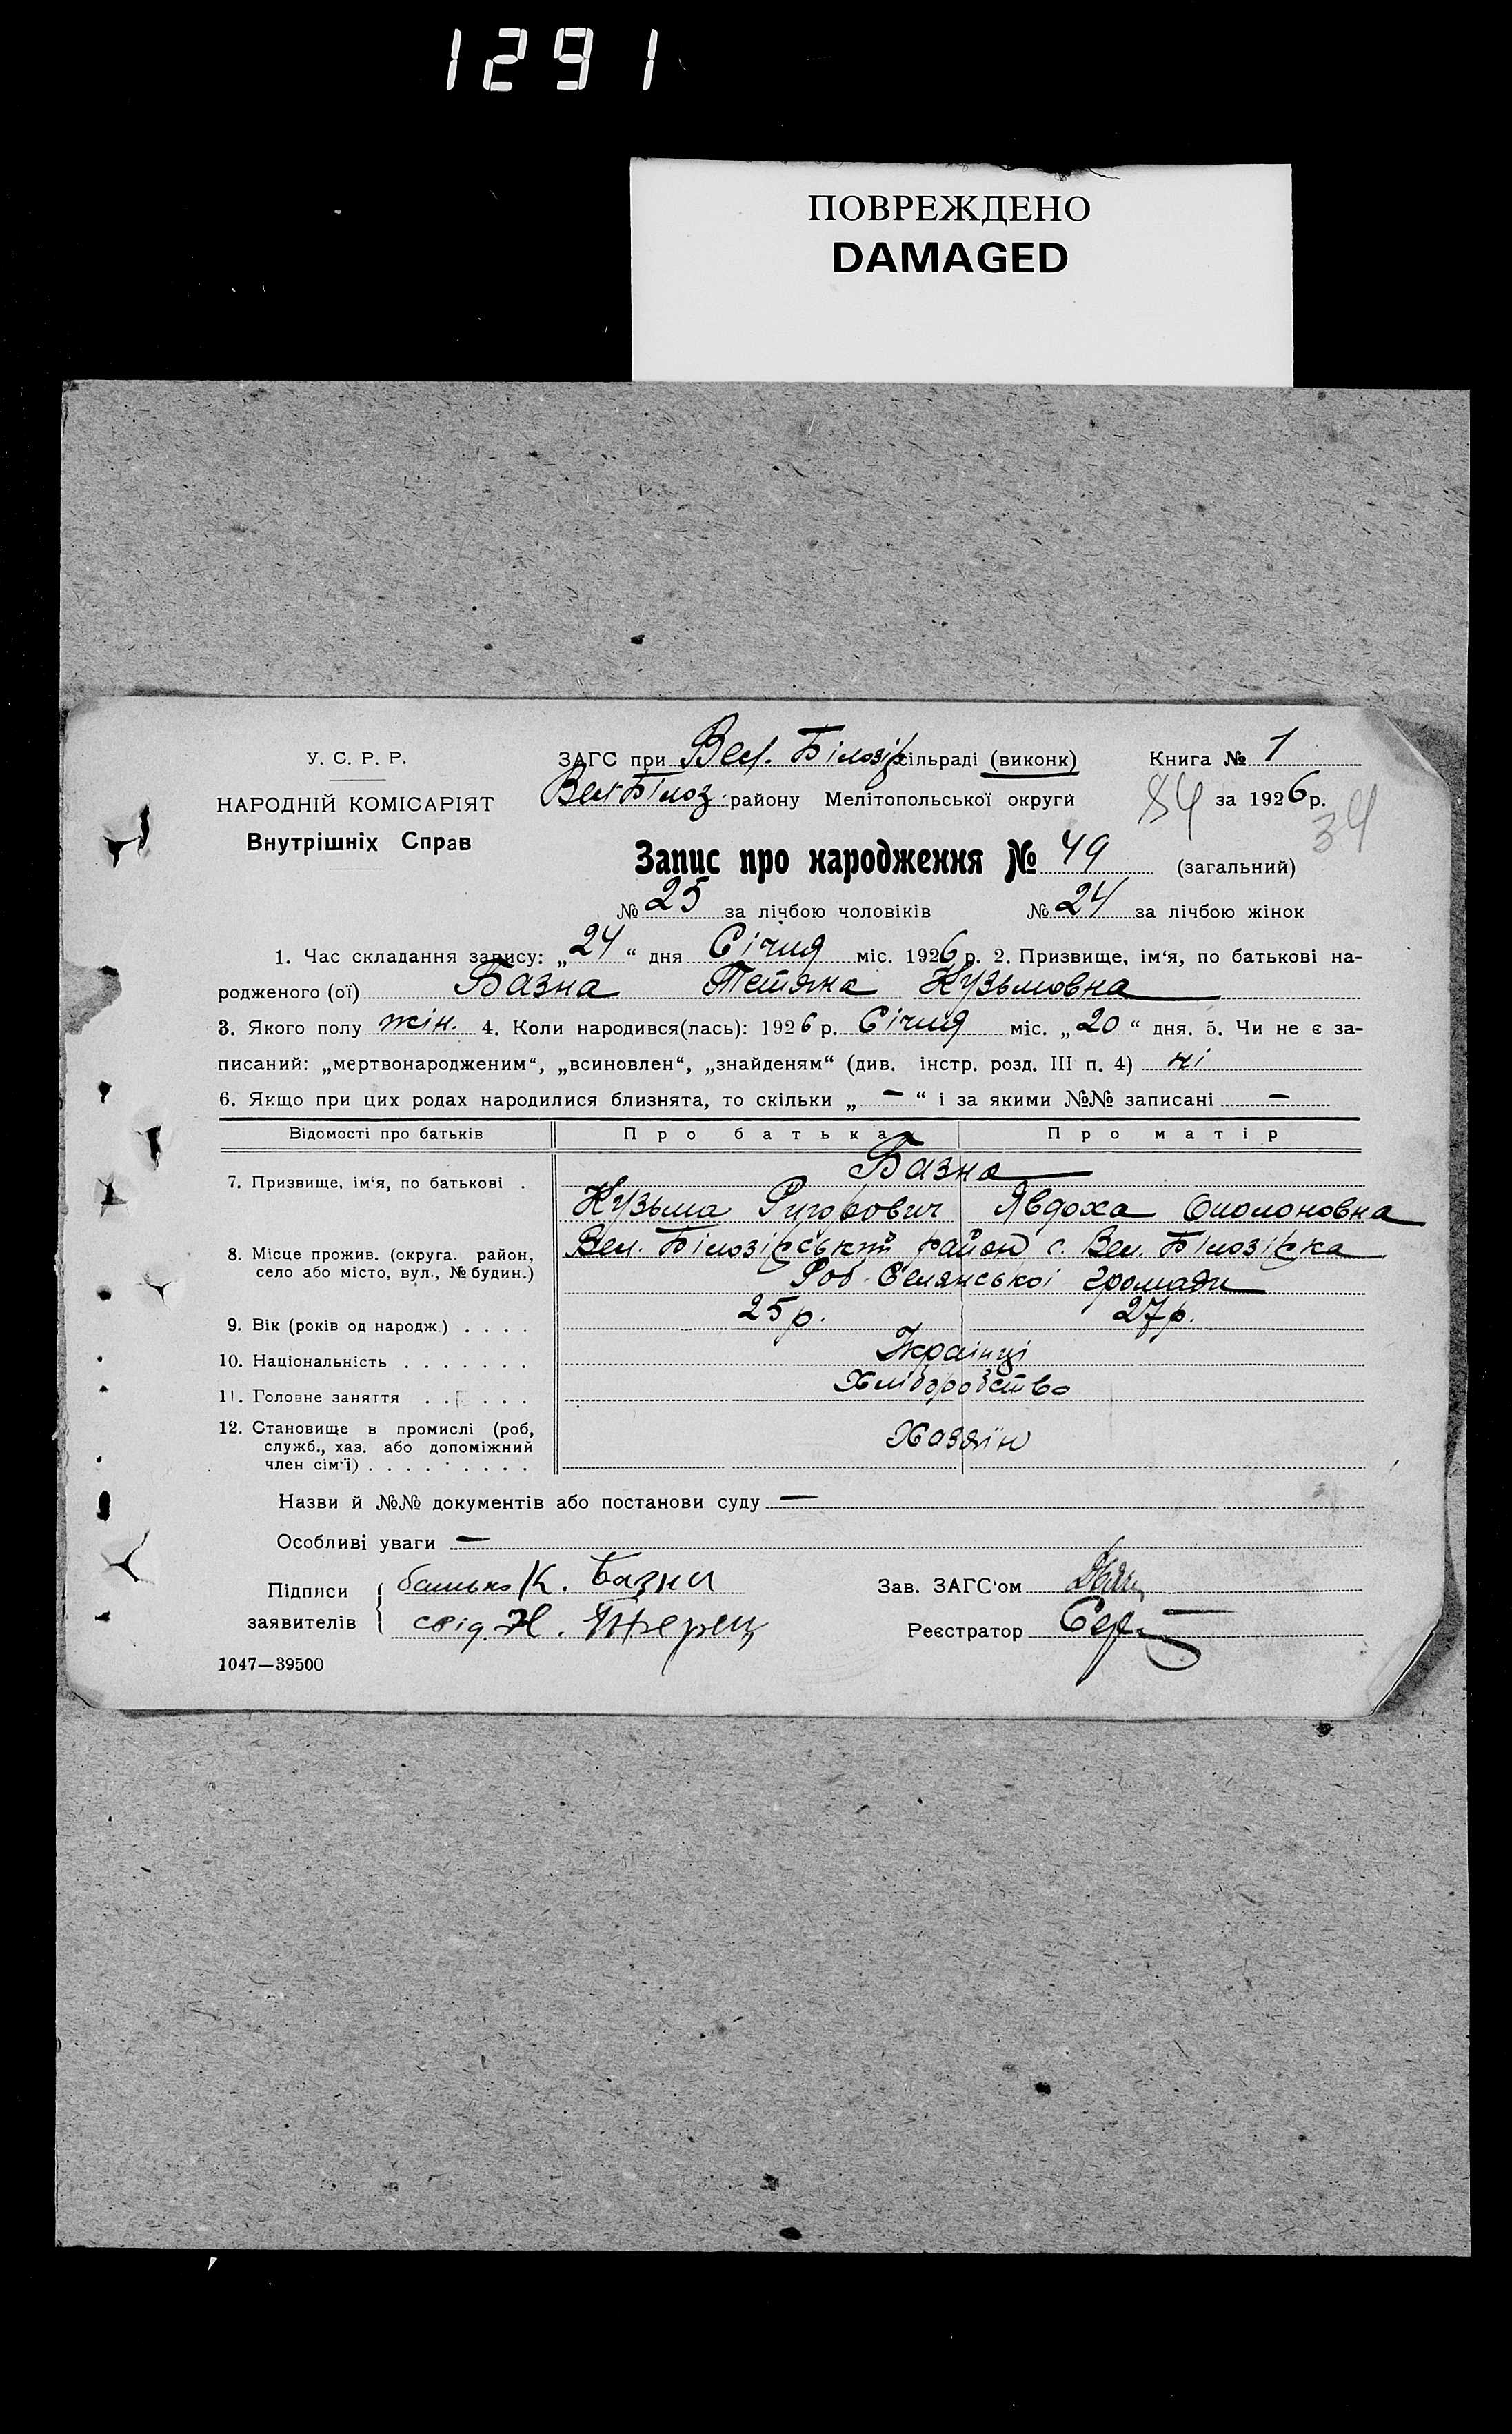 1291
ПОВРЕЖДЕНО
DAMAGED
У. С. Р. Р.
НАРОДНІЙ КОМІСАРІЯТ
Внутрішніх Справ
ЗАГС при Вел. Білозір сільраді (виконк)
Книга № 1
Вел Білоз. району Мелітопольської округи
84 за 1926 р.
34
Запис про народження № 49 (загальний)
№ 25 за лічбою чоловіків № 24 за лічбою жінок
1. Час складання запису: „24“ дня Січня міс. 1926 р. 2. Призвище, ім‘я, по батькові на-
родженого (ої) Базна Тетяна Кузьмовна
3. Якого полу жін. 4. Коли народився(лась): 1926 р. Січня міс. „20“ дня. 5. Чи не є за-
писаний: „мертвонародженим“, „всиновлен“, „знайденям“ (див. інстр. розд. III п. 4) ні
6. Якщо при цих родах народилися близнята, то скільки „ — “ і за якими №№ записані —
Відомості про батьків
Про батька
Про матір
7. Призвище, ім‘я, по батькові .
Базна
Кузьма Григорович
Явдоха
8. Місце прожив. (округа. район,
село або місто, вул., № будин.)
Вел. Білозірський район с. Вел. Білозірка
Селянської громади
9. Вік (років од народж.) . . . .
25 р.
27 р.
10. Національність . . . . . . .
Українці
11. Головне заняття . . . . . .
Хліборобство
12. Становище в промислі (роб,
служб., хаз. або допоміжний
член сім‘ї) . . . . . . . . .
Хазяїн
Назви й №№ документів або постанови суду —
Особливі уваги —
Підписи
заявителів
батько К. Базна
свід. Н.
Зав. ЗАГС‘ом
Реєстратор
1047—39500